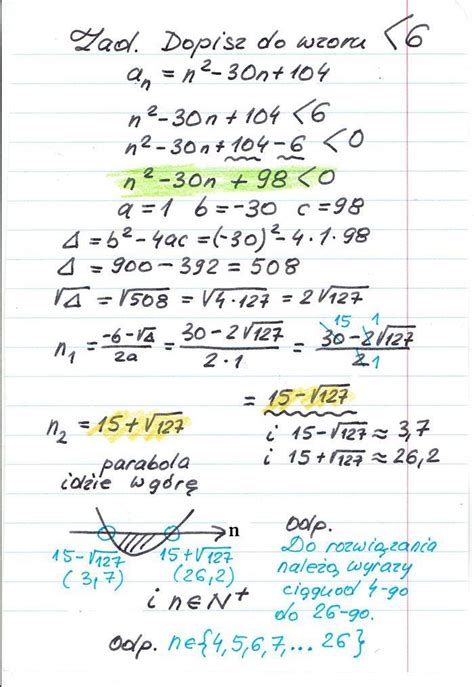 Zad. Dopisz do wzoru <6
aₙ = n²-30n+104
n²-30n+104 <6
n²-30n+104-6 <0
n²-30n + 98 <0
a=1 b=-30 c=98
Δ = b²-4ac = (-30)²-4·1·98
Δ = 900-392 = 508
√Δ = √508 = √4·127 = 2√127
n₁ = -6-√Δ/2a = 30-2√127/2·1 = 30-2√127/2 15 1 1
= 15-√127
n₂ = 15+√127
i 15-√127 ≈ 3,7
i 15+√127 ≈ 26,2
parabola
idzie w górę
n
15-√127 15+√127
(3,7) (26,2)
i n∈N⁺
odp.
Do rozwiązania
należą wyrazy
ciągu od 4-go
do 26-go.
Odp. n∈{4,5,6,7,... 26}